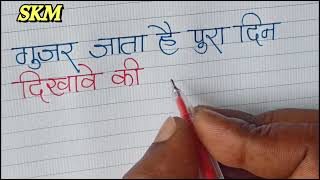 SKM
गुजर जाता है पूरा दिन
दिखावे की